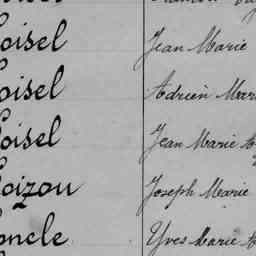 oisel Jean Marie
oisel Adrien Mar
oisel Jean Marie A
oizou Joseph Marie
oncle Yves Marie A